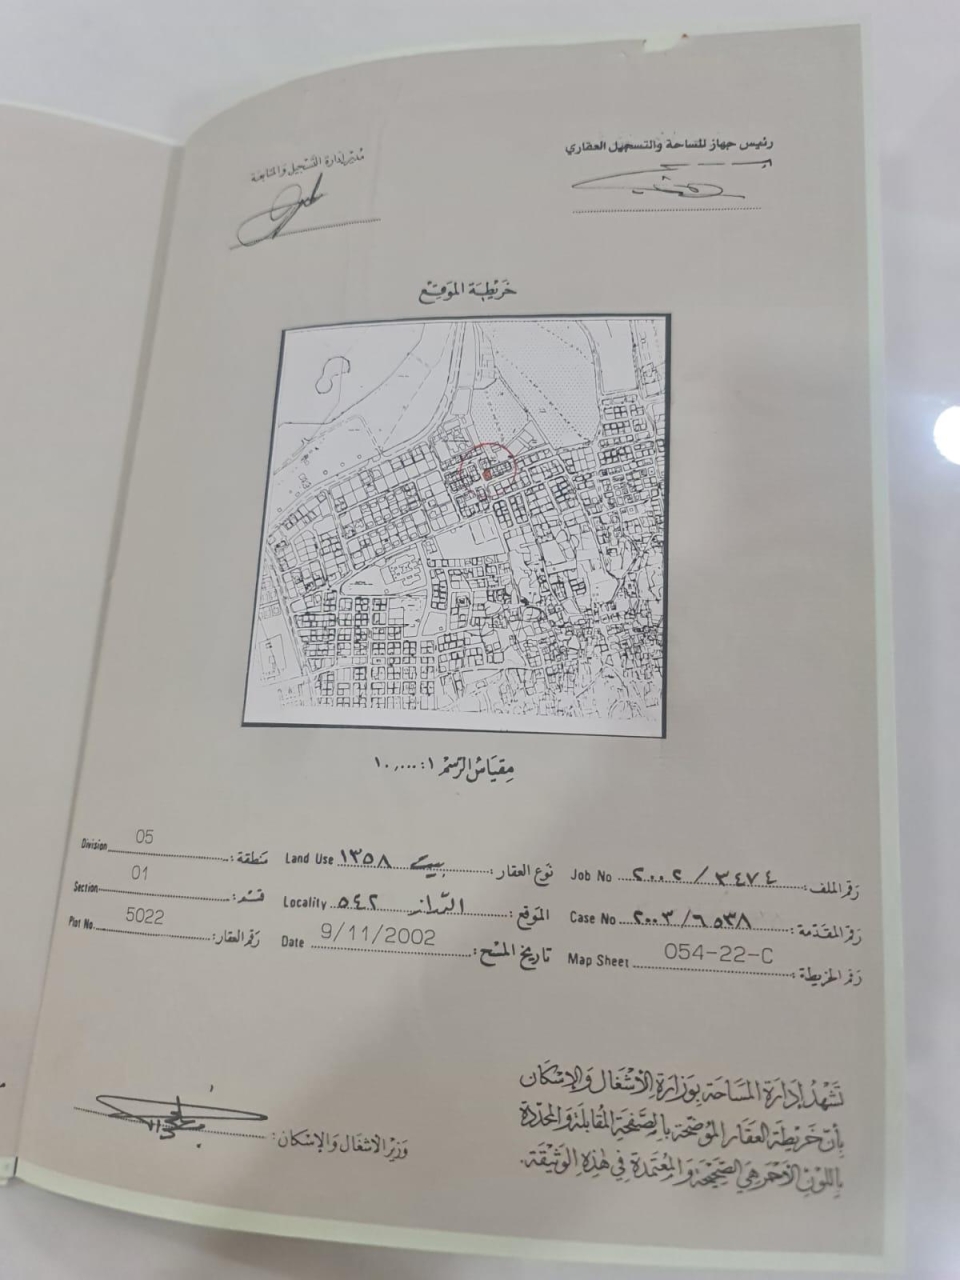 رئيس جهاز المساحة والتسجيل العقاري
مدير إدارة التسجيل والمتابعة
خريطة الموقع
مقياس الرسم ١ : ١٠,٠٠٠
رقم الملف : ٢٠٠٢ / ٣٤٧٤ Job No نوع العقار : بيت ١٣٥٨ Land Use منطقة : 05 Division
رقم المقدمة : ٢٠٠٣ / ٦٥٣٨ Case No الموقع : ٥٤٢ Locality قسم : 01 Section
رقم الخريطة : 054-22-C Map Sheet تاريخ المسح : 9/11/2002 Date رقم العقار : 5022 Plot No.
تشهد إدارة المساحة بوزارة الأشغال والإسكان
بأن خريطة العقار الموضحة بالصفحة المقابلة والمحددة
باللون الأحمر هي الصحيحة والمعتمدة في هذه الوثيقة.
وزير الأشغال والإسكان :